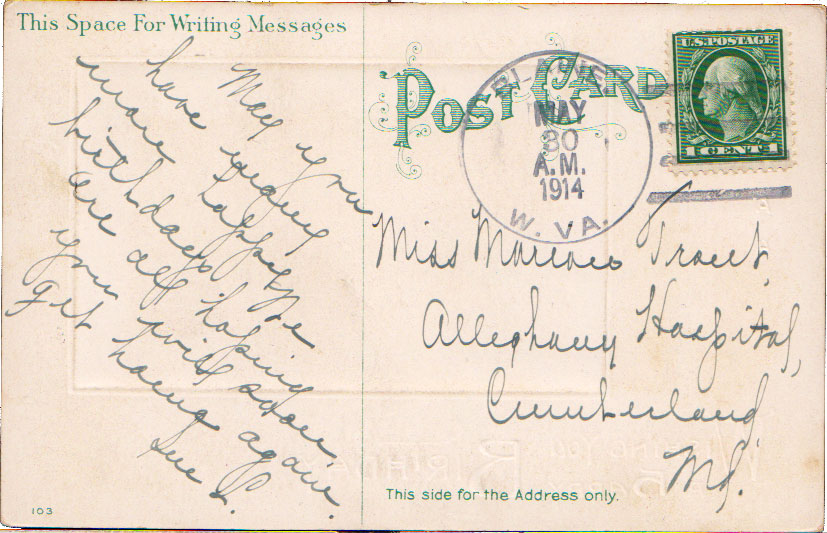 This Space For Writing Messages
May you
have many
more happy
birthdays we
are all hoping
you will soon
get home again.
Sue S.
POST CARD
MAY
30
A.M.
1914
W. VA.
U.S. POSTAGE
1 CENT 1
Miss Trout,
Alleghany Hospital,
Cumberland
Md.
This side for the Address only.
103